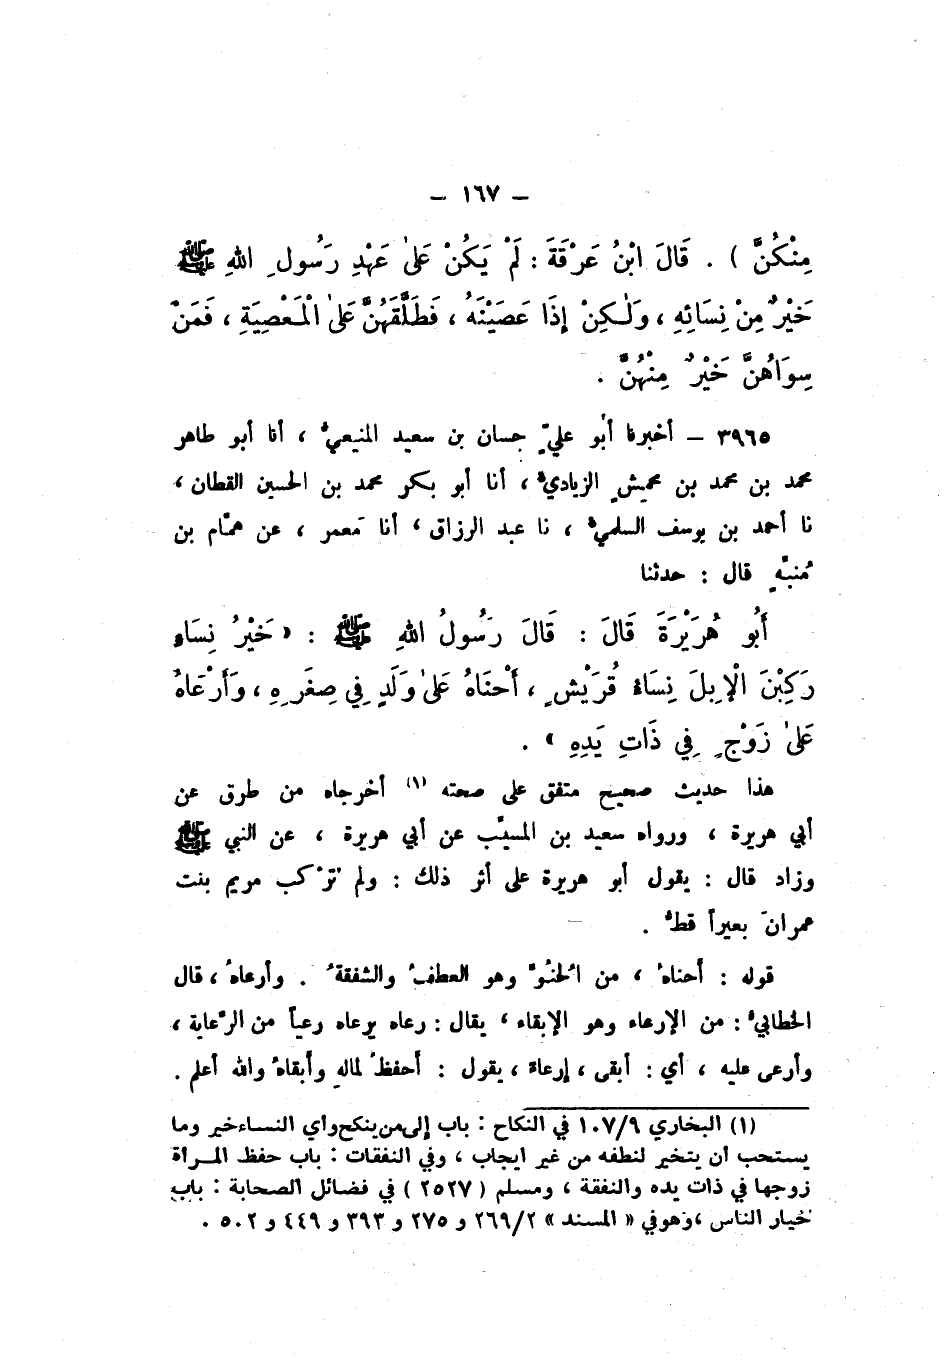 – ١٦٧ –
مِنْكُنَّ ) . قَالَ ابْنُ عَرْفَةَ : لَمْ يَكُنْ عَلَىٰ عَهْدِ رَسُولِ اللهِ ﷺ
خَيْرٌ مِنْ نِسَائِهِ ، وَلَٰكِنْ إِذَا عَصَيْنَهُ ، فَطَلَّقَهُنَّ عَلَىٰ الْمَعْصِيَةِ ، فَمَنْ
سِوَاهُنَّ خَيْرٌ مِنْهُنَّ .
٣٩٦٥ – أخبرنا أبو عليٍّ حسان بن سعيد المنيعيُّ ، أنا أبو طاهر
محمد بن محمد بن محمشٍ الزياديُّ ، أنا أبو بكر محمد بن الحسين القطان ،
نا أحمد بن يوسف السلميُّ ، نا عبد الرزاق ، أنا مَعمر ، عن همّام بن
مُنبّهٍ قال : حدثنا
أَبُو هُرَيْرَةَ قَالَ : قَالَ رَسُولُ اللهِ ﷺ : « خَيْرُ نِسَاءٍ
رَكِبْنَ الْإِبِلَ نِسَاءُ قُرَيْشٍ ، أَحْنَاهُ عَلَىٰ وَلَدٍ فِي صِغَرِهِ ، وَأَرْعَاهُ
عَلَىٰ زَوْجٍ فِي ذَاتِ يَدِهِ » .
هذا حديث صحيح متفق على صحته (١) أخرجاه من طرق عن
أبي هريرة ، ورواه سعيد بن المسيَّب عن أبي هريرة ، عن النبي ﷺ
وزاد قال : يقول أبو هريرة على أثر ذلك : ولم تَرْكب مريم بنت
عمرانَ بعيراً قطُّ .
قوله : أحناهُ ، من الحُنُوِّ وهو العطفُ والشفقةُ . وأرعاهُ ، قال
الخطابيُّ : من الإرعاء وهو الإبقاء ، يقال : رعاه يرعاه رعياً من الرِّعاية ،
وأرعى عليه ، أي : أبقى ، إرعاءً ، يقول : أحفظُ لمالهِ وأبقاهُ والله أعلم .
(١) البخاري ١٠٧/٩ في النكاح : باب إلى من ينكح وأي النساء خير وما
يستحب أن يتخير لنطفه من غير ايجاب ، وفي النفقات : باب حفظ المـرأة
زوجها في ذات يده والنفقة ، ومسلم ( ٢٥٢٧ ) في فضائل الصحابة : باب
خيار الناس ، وهوفي « المسند » ٢٦٩/٢ و ٢٧٥ و ٣٩٣ و ٤٤٩ و ٥٠٢ .